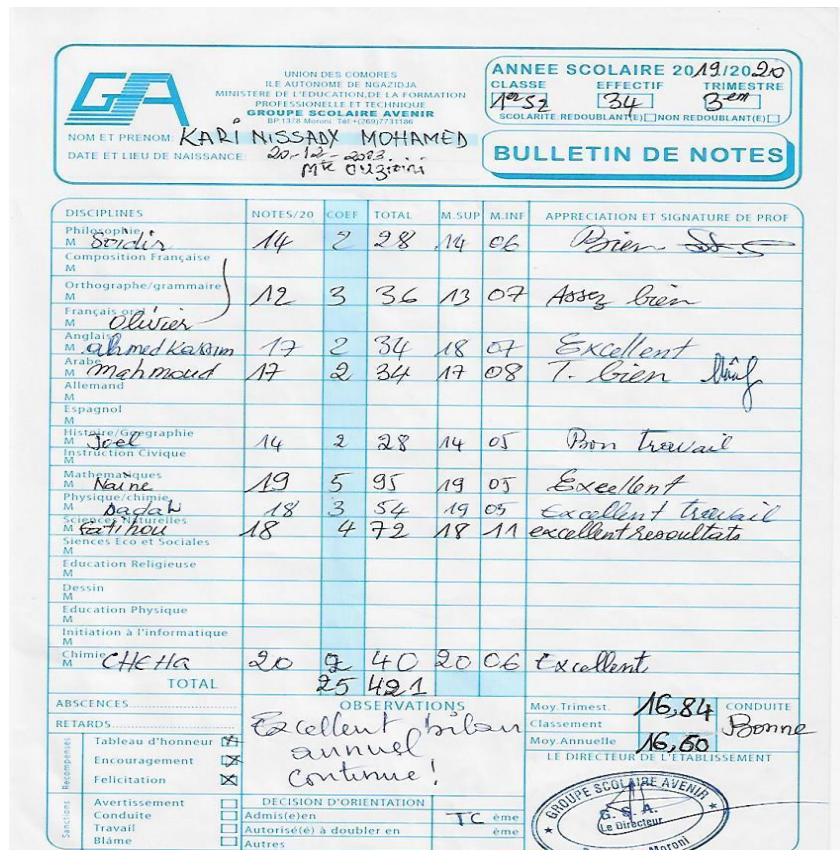 GSA
UNION DES COMORES
ILE AUTONOME DE NGAZIDJA
MINISTERE DE L'EDUCATION,DE LA FORMATION
PROFESSIONELLE ET TECHNIQUE
GROUPE SCOLAIRE AVENIR
BP:1378 Moroni Tél:+(269)7731186
ANNEE SCOLAIRE 2019/2020
CLASSE EFFECTIF TRIMESTRE
1erS2 34 3em
SCOLARITE:REDOUBLANT(E) NON REDOUBLANT(E)
NOM ET PRENOM: KARI NISSADX MOHAMED
DATE ET LIEU DE NAISSANCE: 20-12-2003
BULLETIN DE NOTES
DISCIPLINES NOTES/20 COEF TOTAL M.SUP M.INF APPRECIATION ET SIGNATURE DE PROF
Philosophie
M Soidir 14 2 28 14 06 Bien
Composition Française
M
Orthographe/grammaire
M 12 3 36 13 07 Assez bien
Français oral
M Olivier
Anglais
M ahmed Kassim 17 2 34 18 07 Excellent
Arabe
M mahmoud 17 2 34 17 08 T. bien
Allemand
M
Espagnol
M
Histoire/Géographie
M Joel 14 2 28 14 05 Bon travail
Instruction Civique
Mathématiques
M Naine 19 5 95 19 05 Excellent
Physique/chimie
M Dadah 18 3 54 19 05 Excellent travail
Sciences Naturelles
M Fatihou 18 4 72 18 11 excellent resoultats
Siences Eco et Sociales
M
Education Religieuse
M
Dessin
M
Education Physique
M
Initiation à l'informatique
M
Chimie
M CHEHA 20 2 40 20 06 Excellent
TOTAL 25 421
ABSCENCES
RETARDS
Recompenses
Tableau d'honneur
Encouragement
Felicitation
Sanctions
Avertissement
Conduite
Travail
Blâme
OBSERVATIONS
Excellent bilan
annuel
continue!
DECISION D'ORIENTATION
Admis(e)en TC ème
Autorisé(é) à doubler en ème
Autres
Moy.Trimest. 16,84
Classement
Moy.Annuelle 16,50
CONDUITE
Bonne
LE DIRECTEUR DE L'ETABLISSEMENT
GROUPE SCOLAIRE AVENIR
G. S. A.
Le Directeur
Moroni